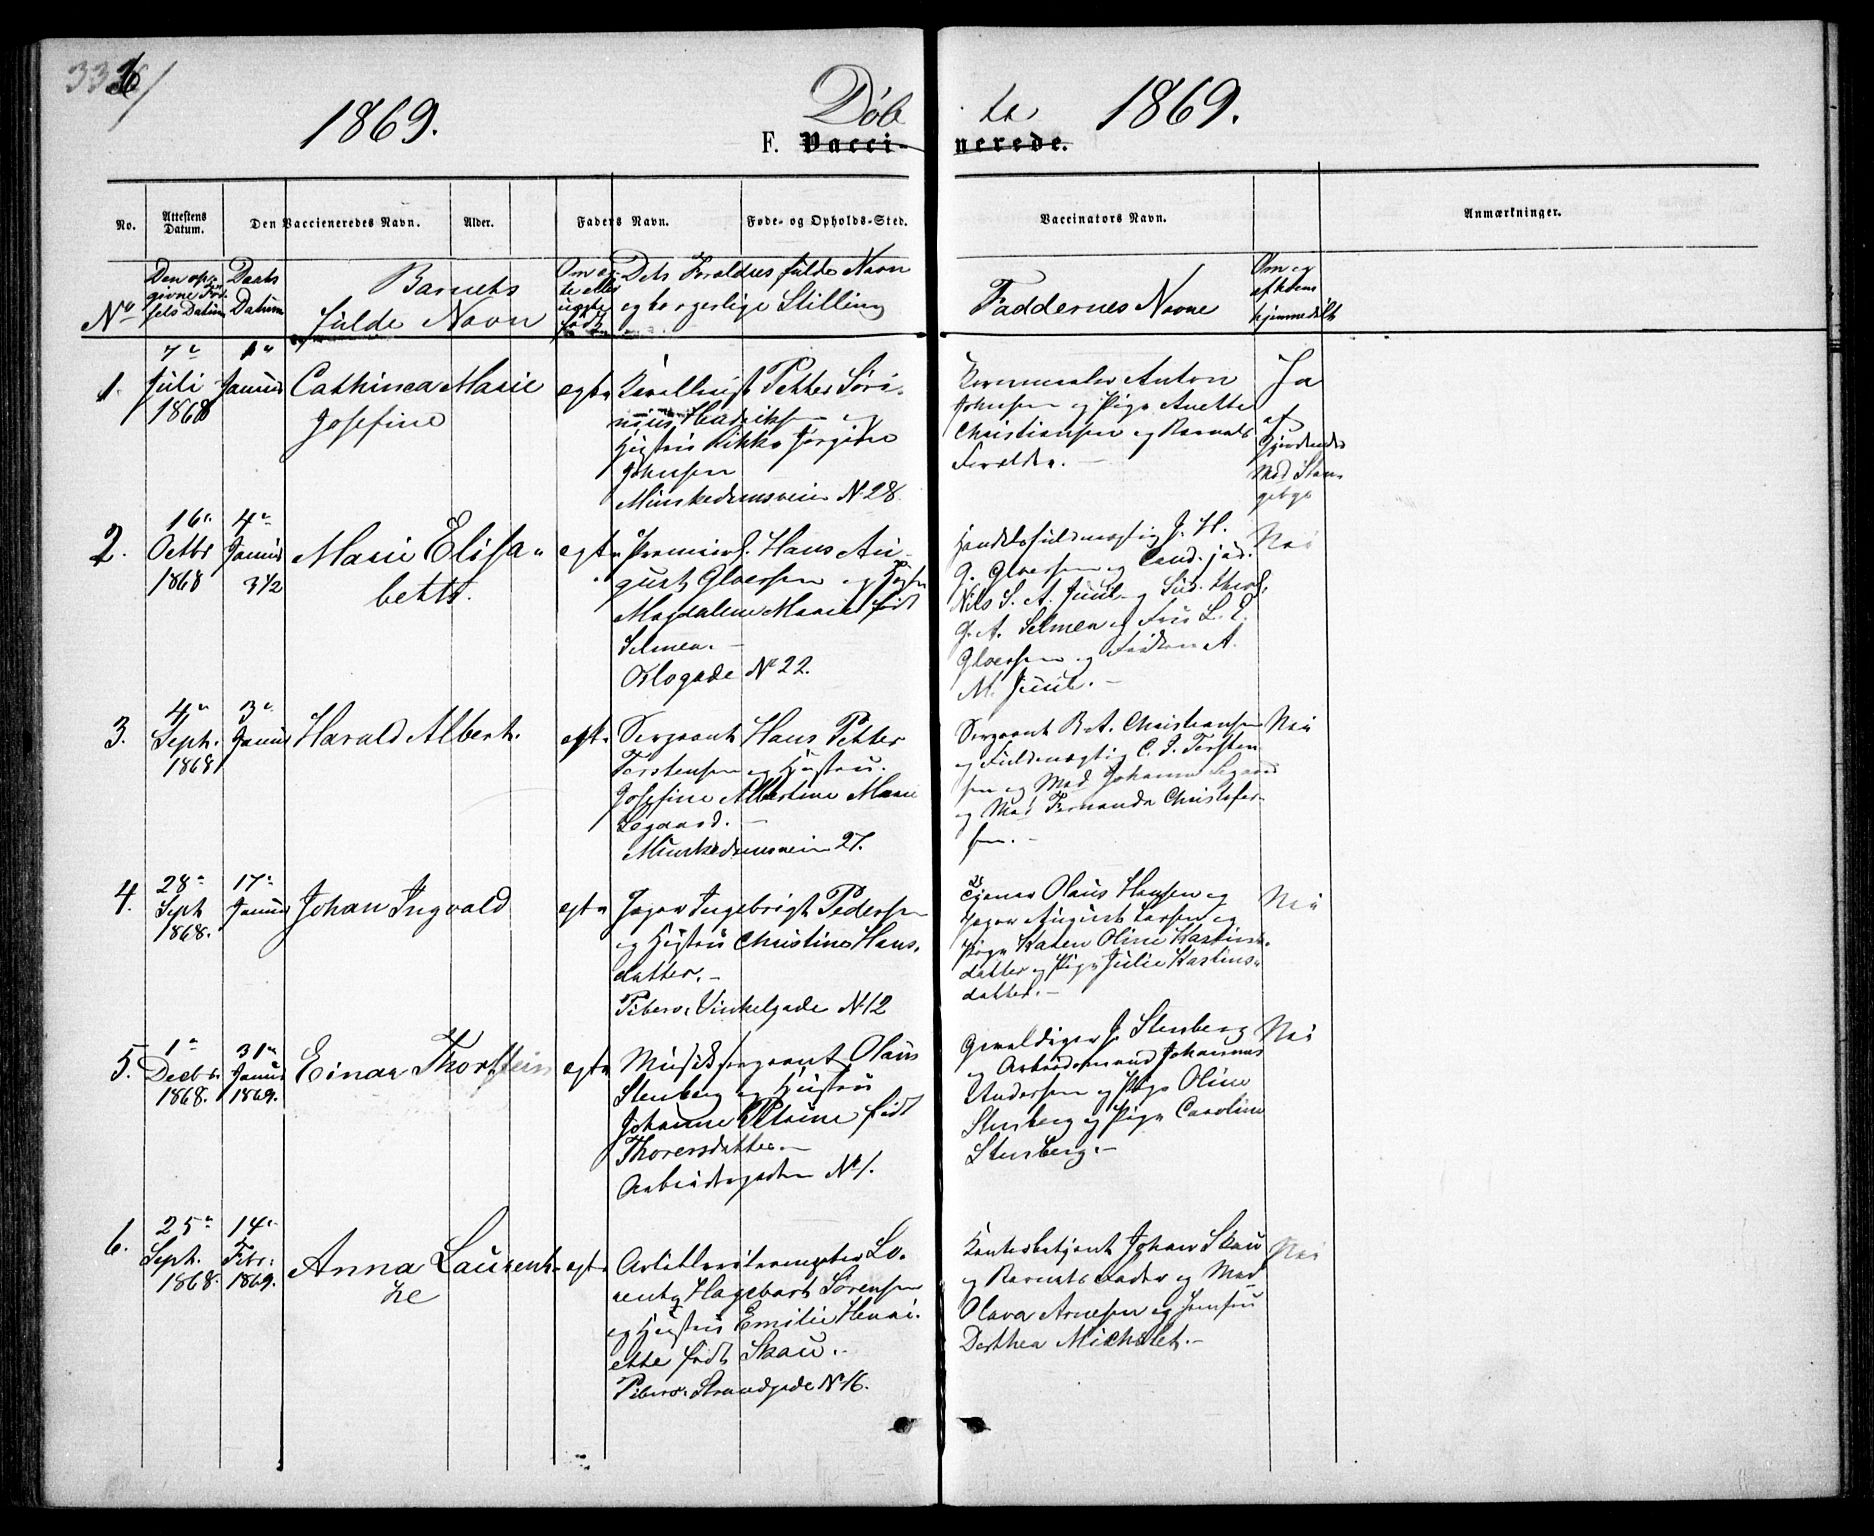 1869.
Døb
te
1869.
F. Vacci-
nerede.
No.
Attestens Datum.
Den Vaccieneredes Navn.
Alder.
Faders Navn.
Føde- og Opholds-Sted.
Vaccinators Navn.
Anmærkninger.
No
Den op-
givne Fød-
sels Datum
Daabs
Datum
Barnets
fulde Navn
Om eg-
te eller
uegte
født
Dets Foreldres fulde Navn
og borgerlige Stilling
Faddernes Navne
Om og
af hvem
hjemmedøbt
1.
7de
Juli
1868
1e
Januar
Cathinca Marie
Josefine
egte
Petter Søri-
nius Hendriksen og
Hustru Rikke Jørgine
Johnsen
Munkedamsveien No 28.
Anton
Johnsen og Pige Anette
Christiansen og Barnets
Forældre.
Ja
af
Gjordemoder
Mad Stan-
gebye
2.
16e
Octbr
1868
4e
Januar
Marie Elisa-
beth.
egte
Premierl. Hans Au-
gust Gloersen og Hustru
Magdalene Marie født
Selmer.
Oslogade No 22.
Handelsfuldmægtig J. H.
G. Gloersen og Cand. jur.
Nils S. A. Juul og Stud. theol.
G. A. Selmer og Fru L. E.
Gloersen og Frøken A.
M. Juul.
Nei
3.
4e
Septr.
1868
3e
Januar
Harald Albert.
egte
Sergeant Hans Petter
Torstensen og Hustru
Josefine Albertine Marie
Segaard.
Munkedamsveien 27.
Sergeant B. A. Christiansen
og Fuldmægtig C. J. Torsten-
sen og Mad Johanne Segaard
og Mad Fernanda Christofer-
sen.
Nei
4.
28e
Sept
1868.
17e
Januar
Johan Ingvald
egte
Jæger Ingebrigt Pedersen
og Hustru Christine Hans-
datter.
Piberv. Vinkelgade No 12
Olaus Hansen og
Jæger August Larsen og
Pige Karen Oline Karlins-
datter og Pige Julie Karlins-
datter.
Nei
5.
1e
Decbr.
1868.
31e
Januar
1869.
Einar Thorstein
egte
Musiksergeant Olaus
Stenberg og Hustru
Johanne Petrine født
Thorersdatter.
Arbeidergaden No 1.
Gevaldiger J. Stenberg
og Arbeidsmand Johannes
Andersen og Pige Oline
Stenberg og Pige Caroline
Stenberg.
Nei
6.
25e
Sept.
1868.
14e
Febr.
1869.
Anna Laurent-
ze
egte
Lo-
rentz Hagebart Sørensen
og Hustru Emilie Henri-
ette født Skau.
Piberv. Strandgade No 16.
Kontorbetjent Johan Skau
og Barnets Fader og Mad
Olava Arnesen og Jomfru
Dorthea Michelet.
Nei